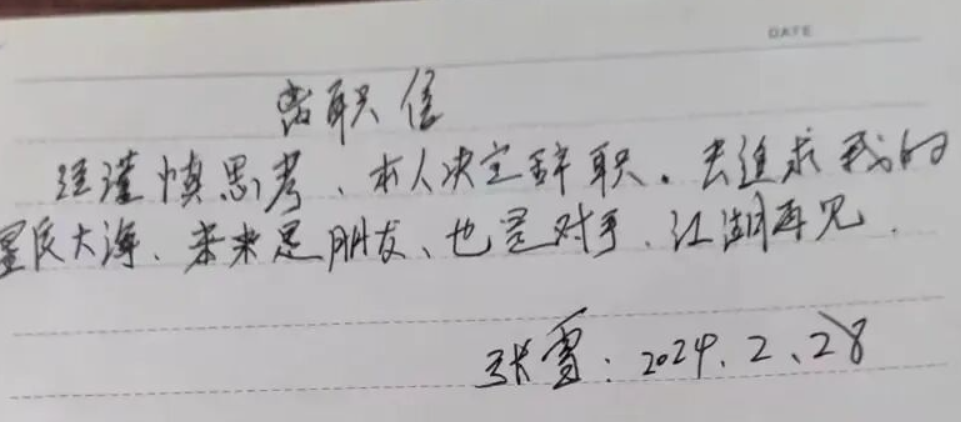 DATE
离职信
经谨慎思考、本人决定辞职。去追求我的
星辰大海、未来是朋友、也是对手、江湖再见.
张雪:2024.2、28